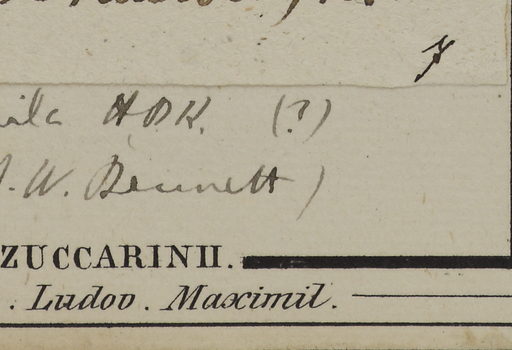 HBK. (?)
W. Bennett)
ZUCCARINII.
. Ludov. Maximil.